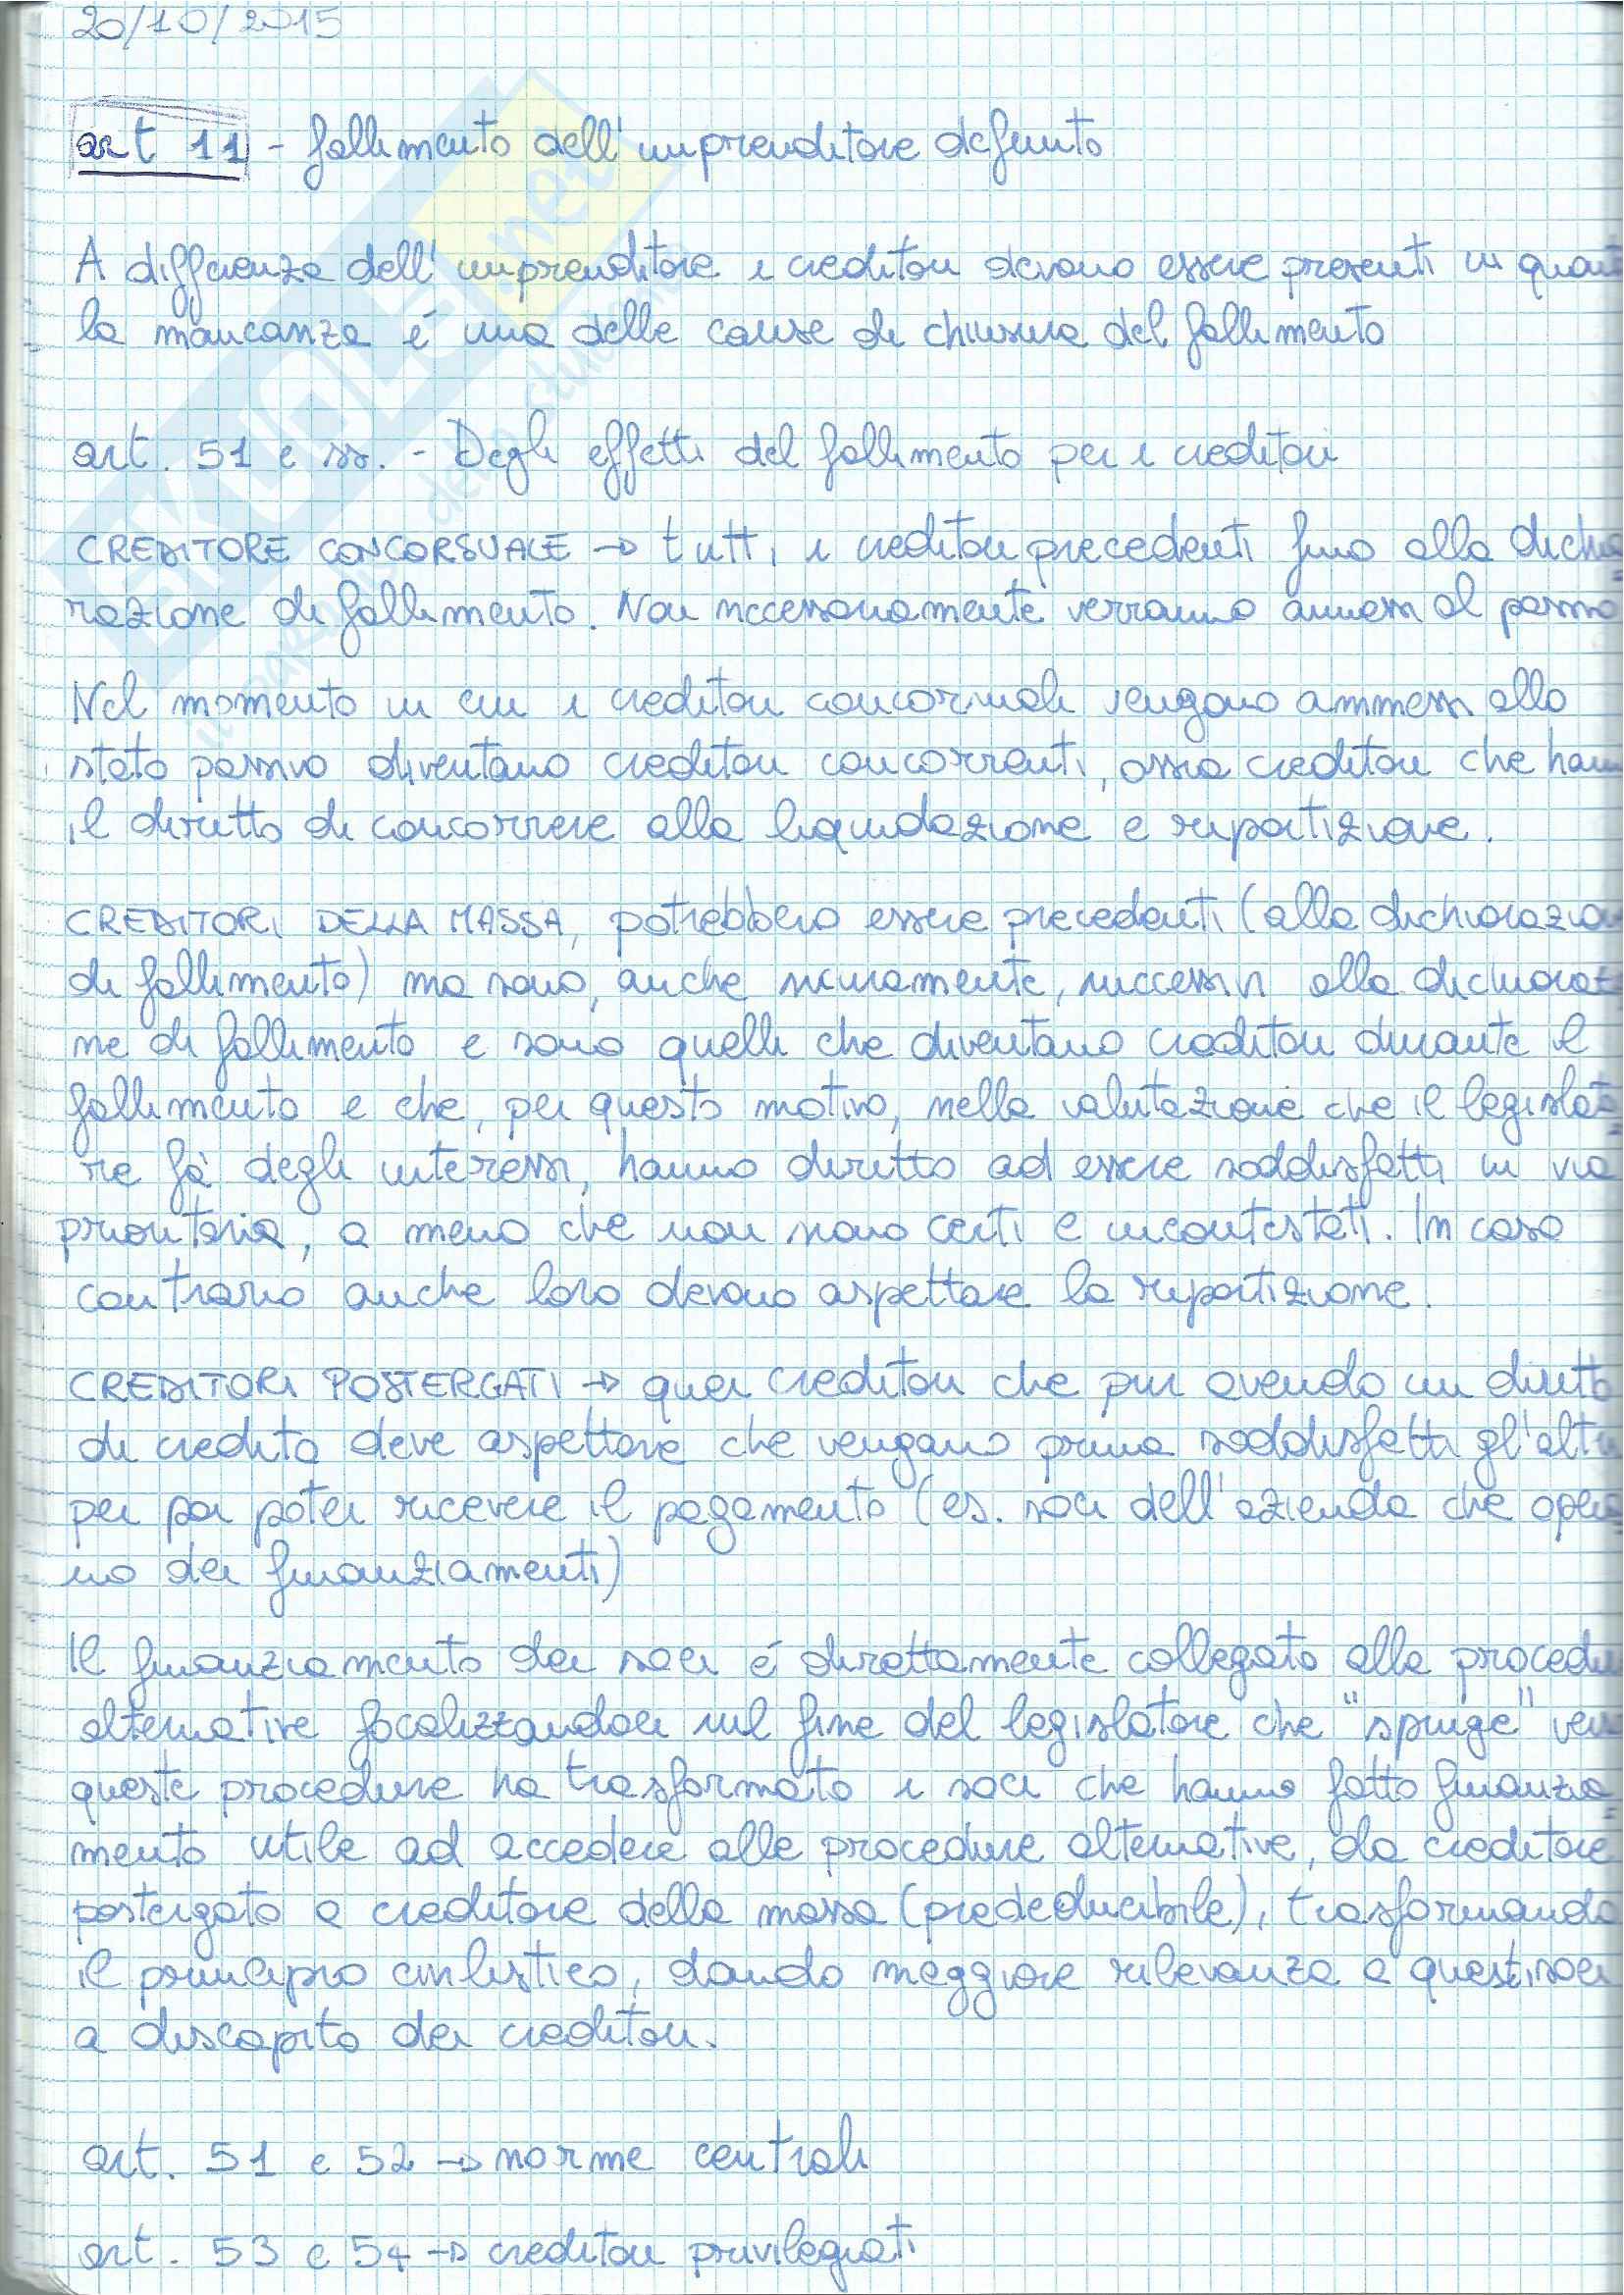 20/10/2015
art 11 - fallimento dell'imprenditore defunto
A differenza dell'imprenditore i creditori devono essere presenti in quan
la mancanza é una delle cause di chiusura del fallimento
art. 51 e ss. - Degli effetti del fallimento per i creditori
CREDITORE CONCORSUALE → tutti i creditori precedenti fino alla dichia
razione di fallimento. Non necessariamente verranno ammessi al passivo
Nel momento in cui i creditori concorsuali vengono ammessi allo
stato passivo diventano creditori concorrenti, ossia creditori che han
il diritto di concorrere alla liquidazione e ripartizione.
CREDITORI DELLA MASSA, potrebbero essere precedenti (alla dichiarazio
di fallimento) ma sono, anche sicuramente, successivi alla dichiaraz
ne di fallimento e sono quelli che diventano creditori durante il
fallimento e che, per questo motivo, nella valutazione che il legislat
re fa' degli interessi, hanno diritto ad essere soddisfatti in via
prioritaria, a meno che non siano certi e incontestati. In caso
contrario anche loro devono aspettare la ripartizione.
CREDITORI POSTERGATI → quei creditori che pur avendo un diritto
di credito deve aspettare che vengano prima soddisfatti gl'altri
per poi poter ricevere il pagamento (es. soci dell'azienda che opera
no dei finanziamenti)
Il finanziamento dei soci é direttamente collegato alle procedu
alternative focalizzandoci sul fine del legislatore che "spinge" ver
queste procedure ha trasformato i soci che hanno fatto finanzia
mento utile ad accedere alle procedure alternative, da creditore
postergato a creditore della massa (prededucibile), trasformando
il principio civilistico, dando meggiore rilevanza a questi soci
a discapito dei creditori.
art. 51 e 52 → norme centrali
art. 53 e 54 → creditori privilegiati
SKUOLA.net